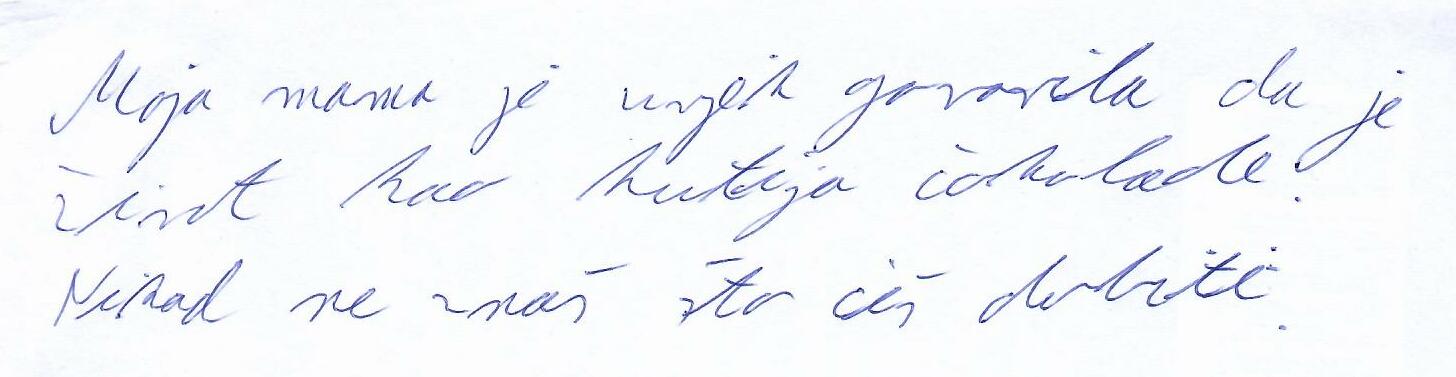 Moja mama je uvijek govorila da je
život kao kutija čokolade.
Nikad ne znaš što ćeš dobiti.